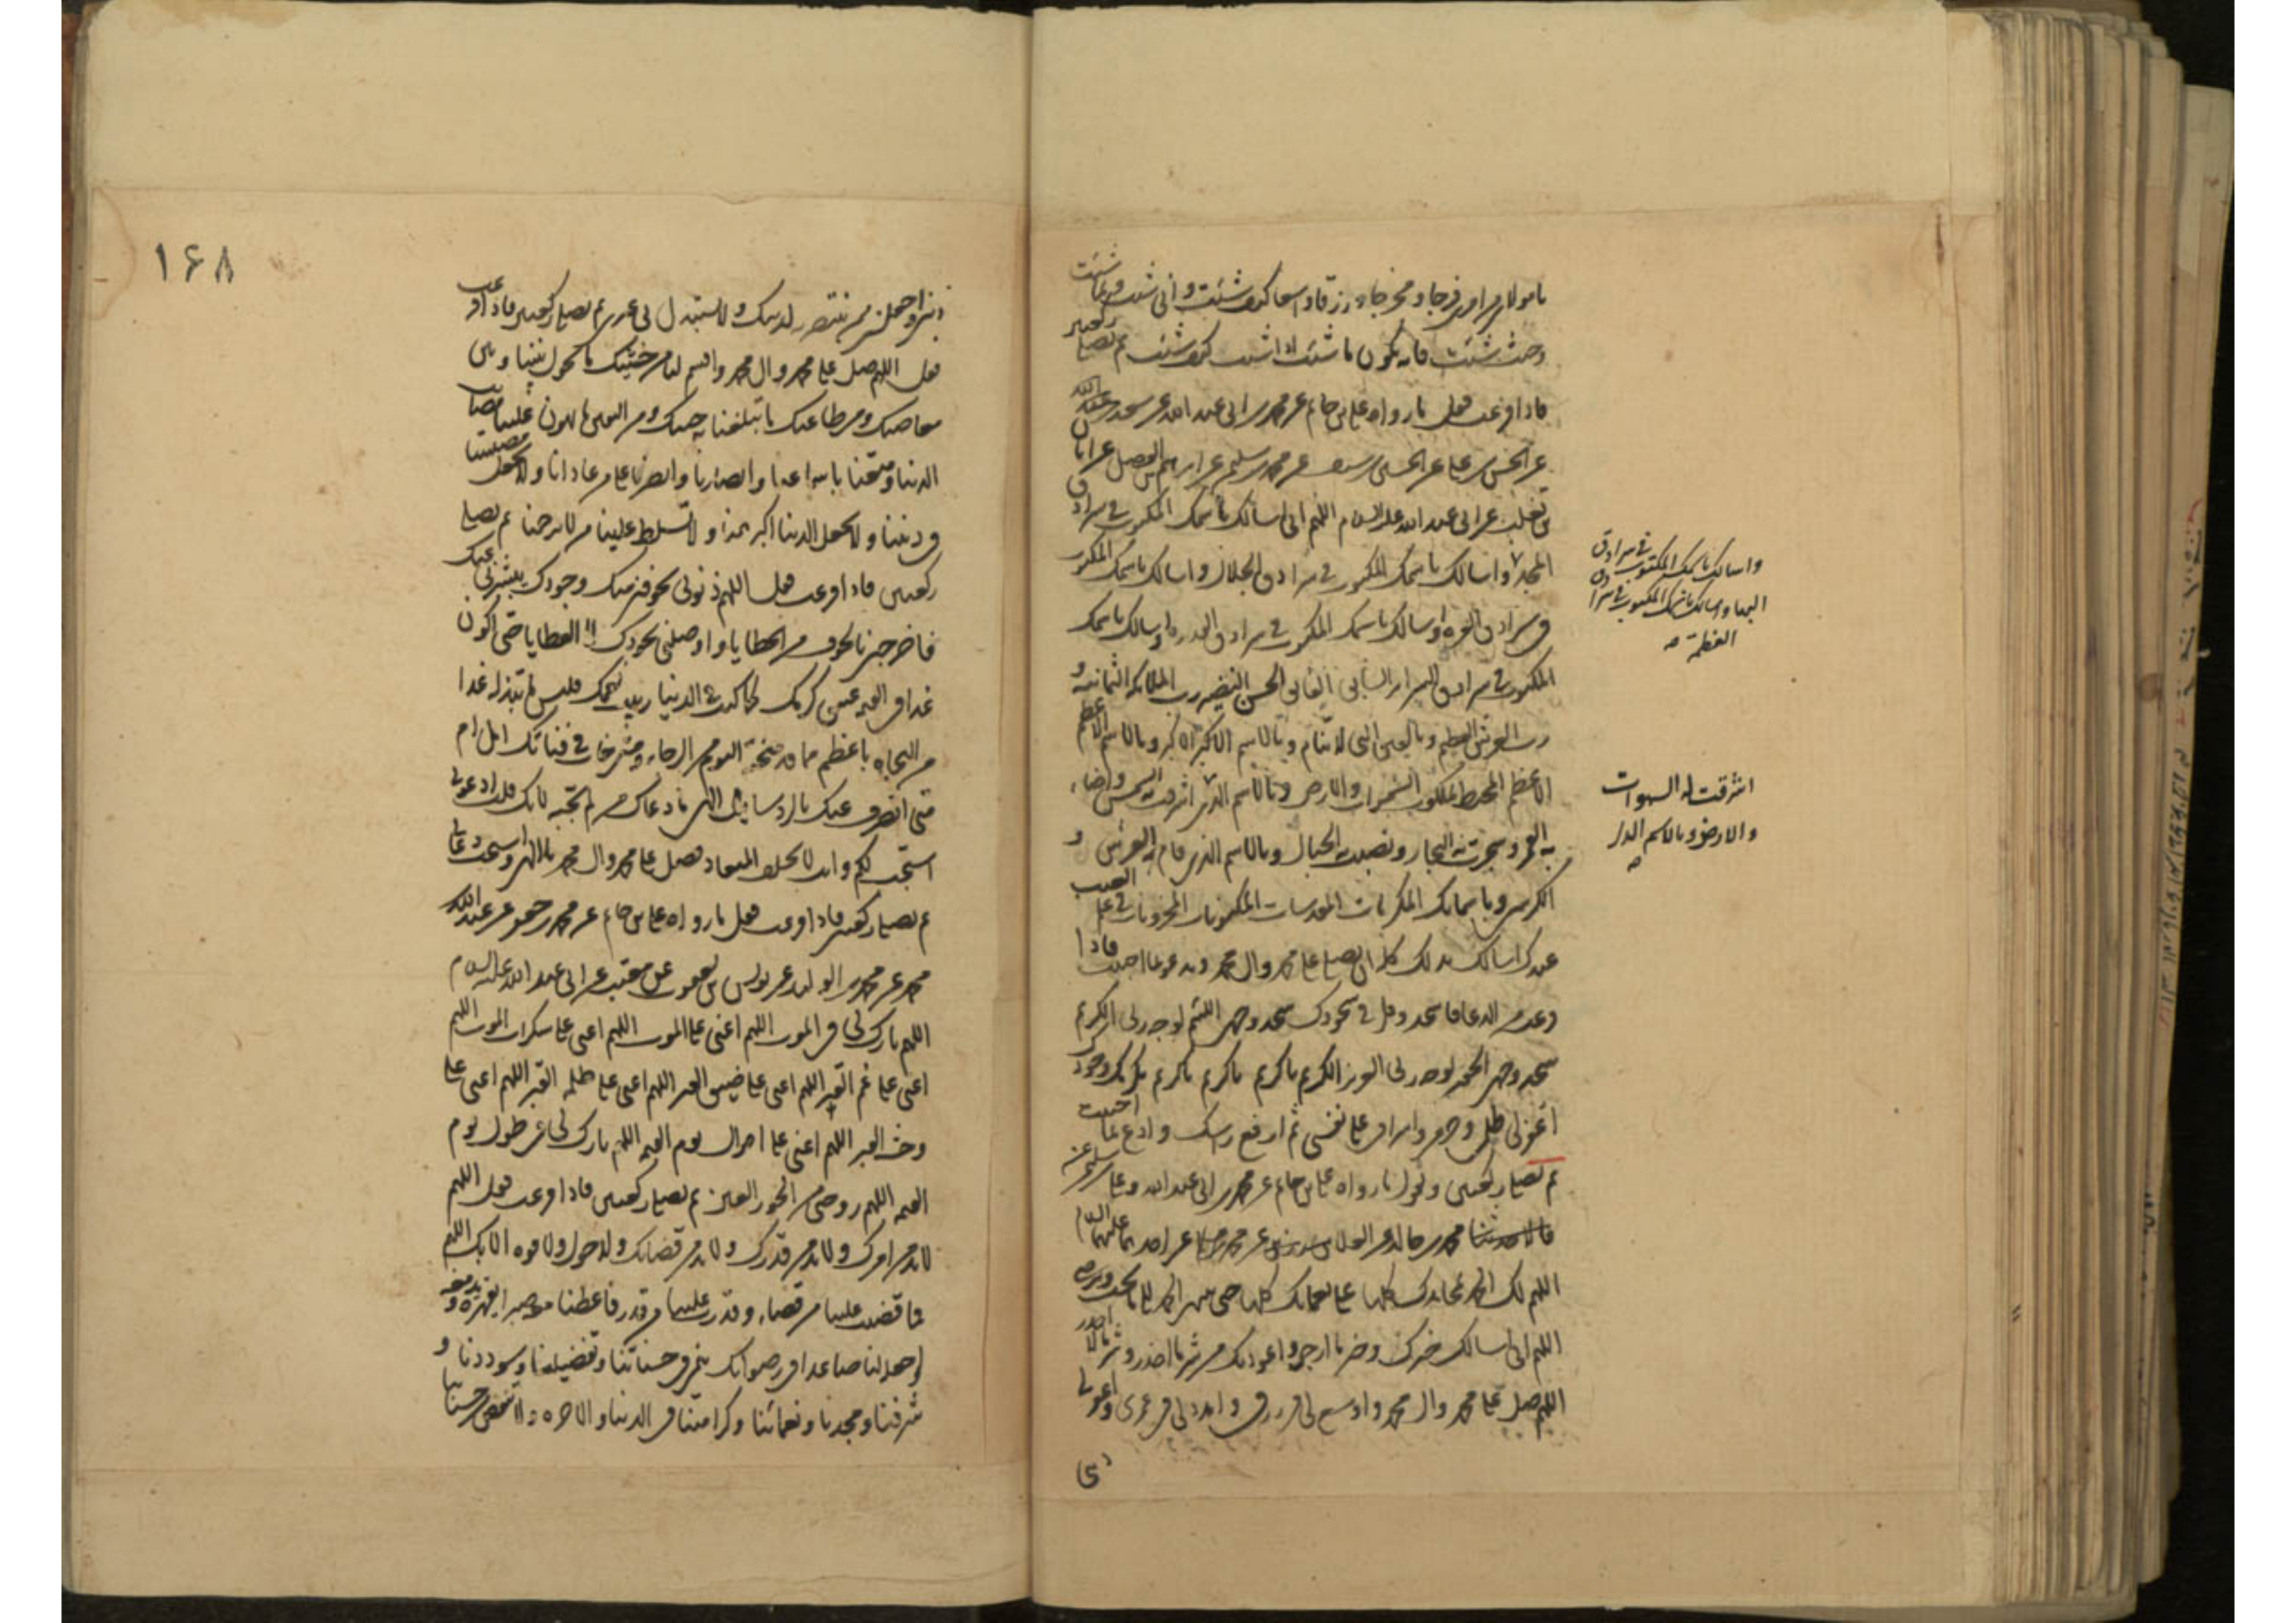 يا مولاي من امري فرجا و مخرجا و رزقا واسعا كيف شئت و انى شئت و بما شئت
و حيث شئت فانه يكون ما شئت اذا شئت كيف شئت ثم تصلي ركعتين
فاذا فرغت فقل ما رواه علي بن حاتم عن محمد بن ابي عبد الله عن سعد بن عبد الله
عن الحسن بن علي عن الحسين بن سيف عن محمد بن سليمن عن ابرهيم بن الفضل عن ابان
بن تغلب عن ابي عبد الله عليه السلام اللهم اني اسالك باسمك المكتوب في سرادق
المجد و اسالك باسمك المكتوب في سرادق الجلال و اسالك باسمك المكتوب
في سرادق العزة و اسالك باسمك المكتوب في سرادق القدرة و اسالك باسمك
المكتوب في سرادق السرائر السابق الفائق الحسن النضير رب الملائكة الثمانية و
رب العرش العظيم و بالعين التي لا تنام و بالاسم الاكبر الاكبر و بالاسم الاعظم
الاعظم المحيط بملكوت السموات و الارض و بالاسم الذي اشرقت به الشمس و اضاء
به القمر و سجرت به البحار و نصبت به الجبال و بالاسم الذي قام به العرش و
الكرسي و باسمائك المكرمات المقدسات المكنونات المخزونات في علم الغيب
عندك اسالك بذلك كله ان تصلي على محمد و ال محمد و تدعو بما احببت فاذا
فرغت من الدعاء فاسجد و قل في سجودك سجد وجهي اللئيم لوجه ربي الكريم
سجد وجهي الحقير لوجه ربي العزيز الكريم يا كريم يا كريم يا كريم بكرمك و جودك
اغفر لي ظلمي و جرمي و اسرافي على نفسي ثم ارفع راسك و ادع بما احببت
ثم تصلي ركعتين و تقول ما رواه علي بن حاتم عن محمد بن ابي عبد الله و علي بن سليمن عن
محمد بن خالد عن العلا عن محمد عن احدهما عليهما السلام
اللهم لك الحمد بمحامدك كلها على نعمائك كلها حتى ينتهي الحمد الى ما تحب و ترضى
اللهم اني اسالك خيرك و خير ما ارجو و اعوذ بك من شر ما احذر و شر ما لا احذر
اللهم صل على محمد و ال محمد و اوسع لي في رزقي و امدد لي في عمري و اغفر لي
و اسالك باسمك المكتوب في سرادق
البهاء و اسالك باسمك المكتوب في سرادق
العظمة
اشرقت له السموات
و الارض و بالاسم الذي
١٦٨
ذنبي و اجعلني ممن تنتصر به لدينك و لا تستبدل بي غيري ثم تصلي ركعتين فاذا فرغت
فقل اللهم صل على محمد و ال محمد و اقسم لنا من خشيتك ما يحول بيننا و بين
معاصيك و من طاعتك ما تبلغنا به جنتك و من اليقين ما يهون علينا مصيبات
الدنيا و متعنا باسماعنا و ابصارنا و انصرنا على من عادانا و لا تجعل مصيبتنا
في ديننا و لا تجعل الدنيا اكبر همنا و لا تسلط علينا من لا يرحمنا ثم تصلي
ركعتين فاذا فرغت فقل اللهم ذنوبي تخوفني منك و جودك يبشرني عنك
فاخرجني بالخوف من الخطايا و اوصلني بجودك الى العطايا حتى اكون
غدا في القيمة عتيق كرمك كما كنت في الدنيا ربيب نعمك فليس ما تبذله غدا
من النجاة باعظم مما قد منحته اليوم من الرجاء و متى خاب في فنائك امل ام
متى انصرف عنك بالرد سائل الهي ما دعاك من لم تجبه لانك قلت ادعوني
استجب لكم و انت لا تخلف الميعاد فصل على محمد و ال محمد يا الهي و استجب دعائي
ثم تصلي ركعتين فاذا فرغت فقل ما رواه علي بن حاتم عن محمد بن جعفر عن عبد الله
محمد عن محمد بن الوليد عن يونس بن يعقوب عن معتب عن ابي عبد الله عليه السلام
اللهم بارك لي في الموت اللهم اعني على الموت اللهم اعني على سكرات الموت اللهم
اعني على غم القبر اللهم اعني على ضيق القبر اللهم اعني على ظلمة القبر اللهم اعني على
وحشة القبر اللهم اعني على اهوال يوم القيمة اللهم بارك لي في طول يوم
القيمة اللهم زوجني من الحور العين ثم تصلي ركعتين فاذا فرغت فقل اللهم
لا بد من امرك و لا بد من قدرك و لا بد من قضائك و لا حول و لا قوة الا بك اللهم
فما قضيت علينا من قضاء و قدرت علينا من قدر فاعطنا معه صبرا يقهره و يدمغه
و اجعله لنا صاعدا في رضوانك ينمي في حسناتنا و تفضيلنا و سوددنا و
شرفنا و مجدنا و نعمائنا و كرامتنا في الدنيا و الاخرة و لا تنقص من حسناتنا